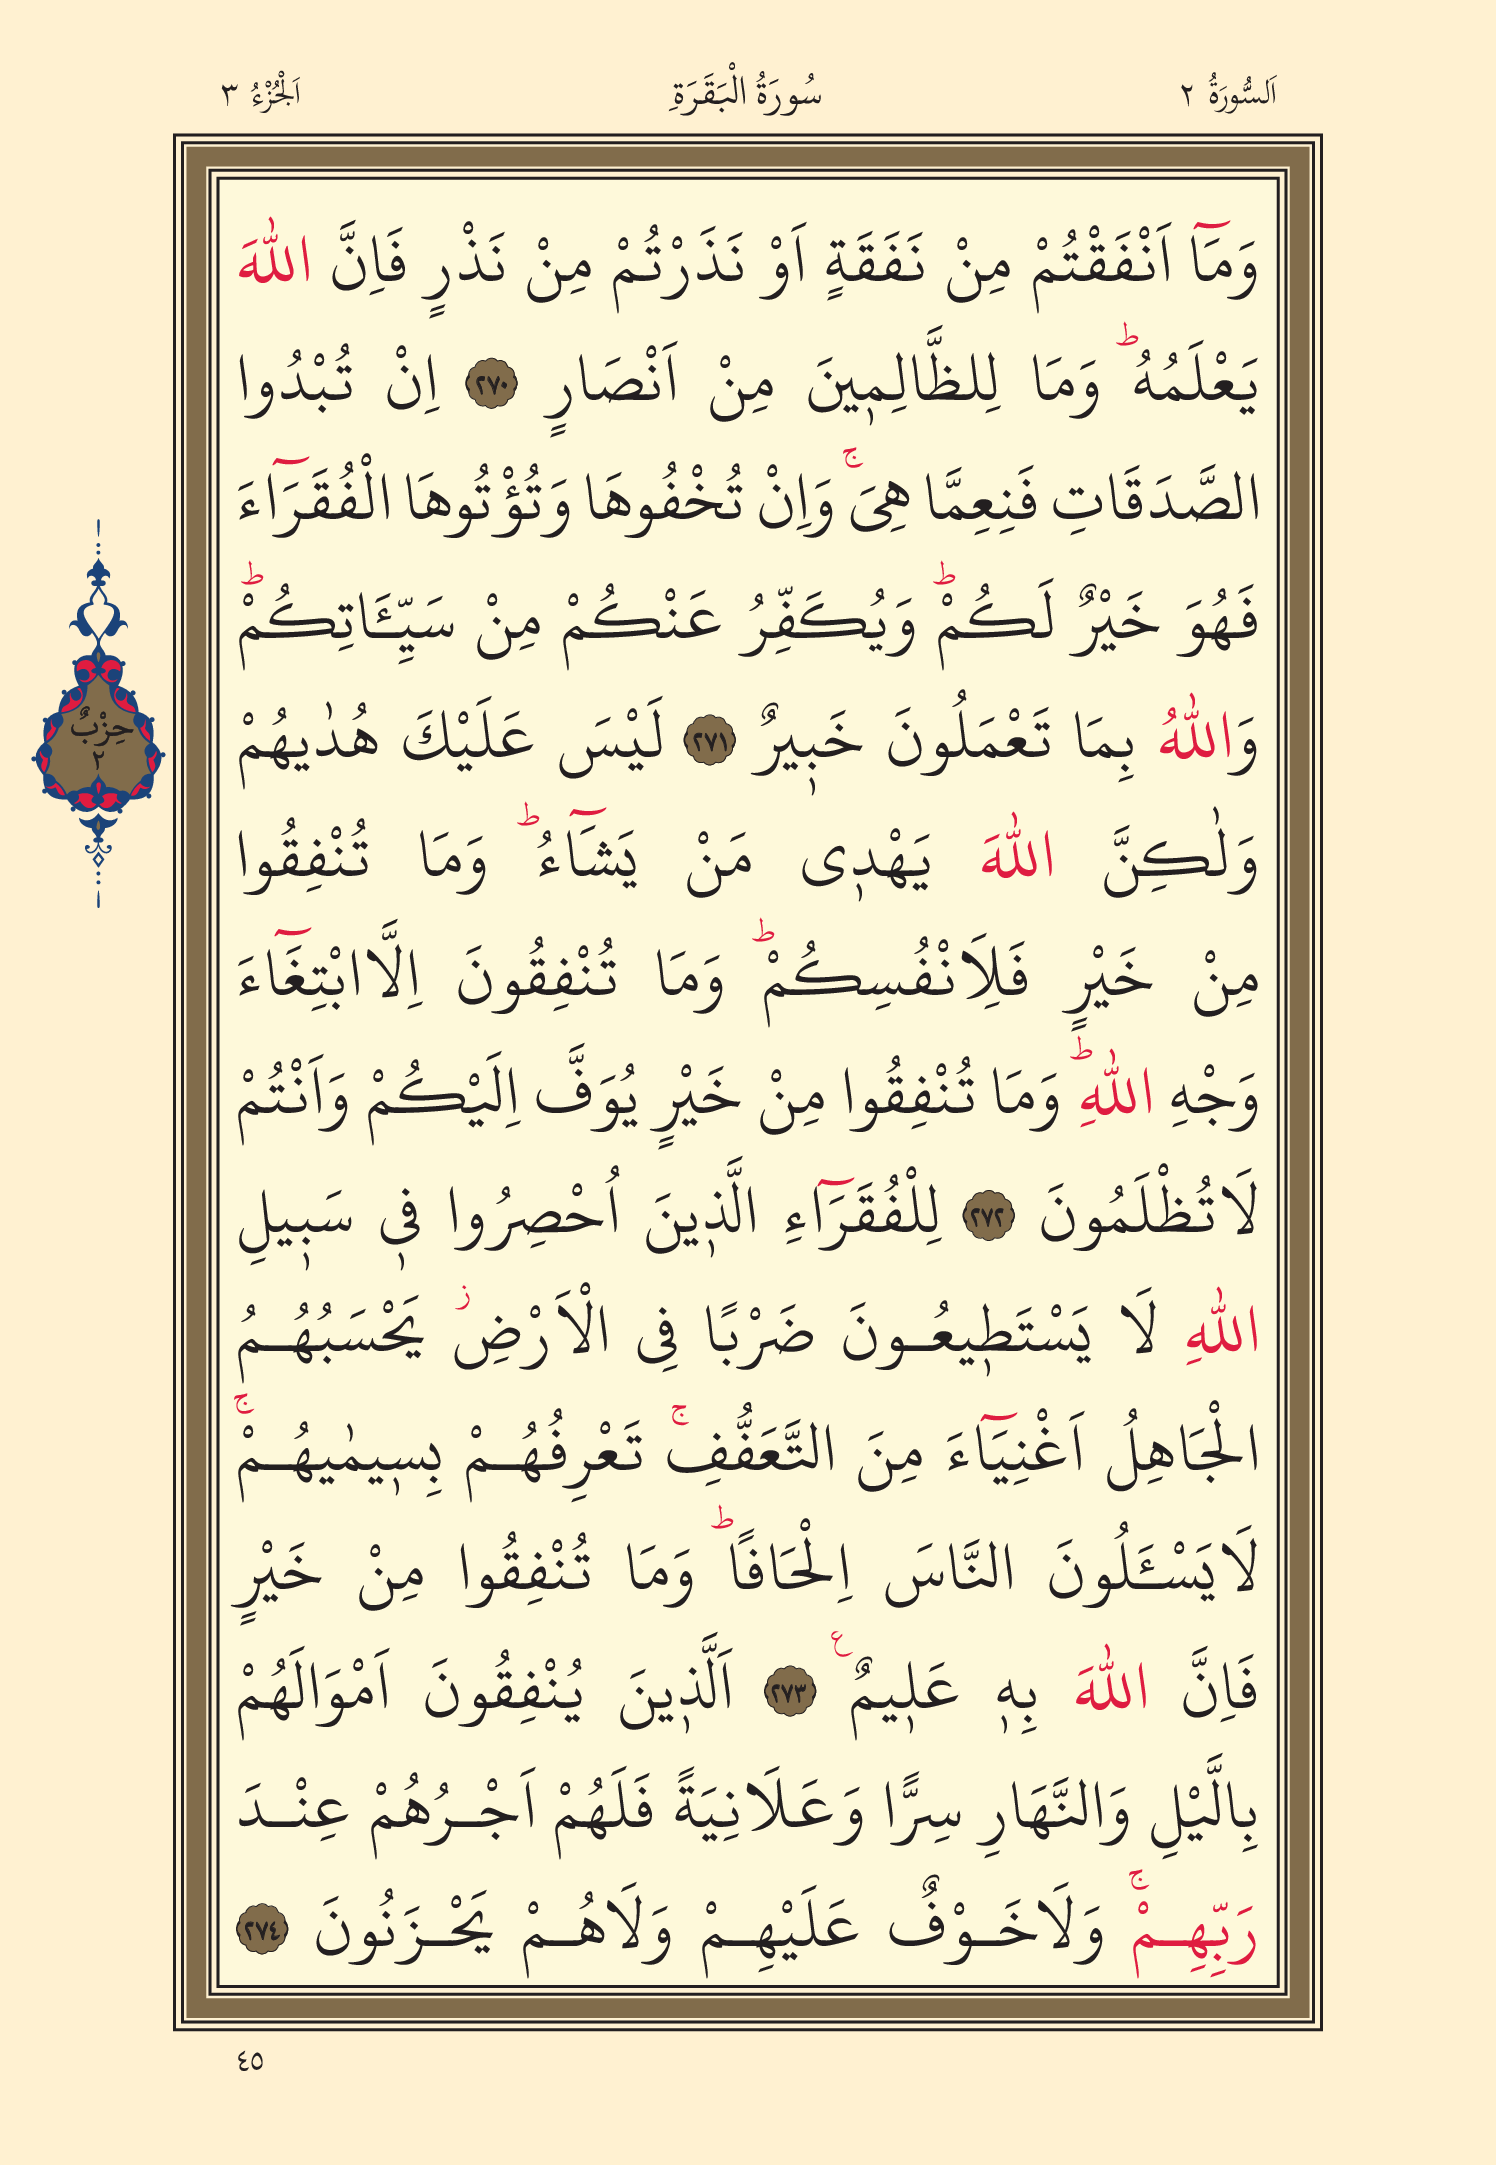 اَلسُّورَةُ ٢ سُورَةُ الْبَقَرَةِ اَلْجُزْءُ ٣
وَمَٓا اَنْفَقْتُمْ مِنْ نَفَقَةٍ اَوْ نَذَرْتُمْ مِنْ نَذْرٍ فَاِنَّ اللّٰهَ
يَعْلَمُهُۜ وَمَا لِلظَّالِمٖينَ مِنْ اَنْصَارٍ ﴿٢٧٠﴾ اِنْ تُبْدُوا
الصَّدَقَاتِ فَنِعِمَّا هِيَۚ وَاِنْ تُخْفُوهَا وَتُؤْتُوهَا الْفُقَرَٓاءَ
فَهُوَ خَيْرٌ لَكُمْۜ وَيُكَفِّرُ عَنْكُمْ مِنْ سَيِّـَٔاتِكُمْۜ
وَاللّٰهُ بِمَا تَعْمَلُونَ خَبٖيرٌ ﴿٢٧١﴾ لَيْسَ عَلَيْكَ هُدٰيهُمْ
وَلٰكِنَّ اللّٰهَ يَهْدٖى مَنْ يَشَٓاءُۜ وَمَا تُنْفِقُوا
مِنْ خَيْرٍ فَلِاَنْفُسِكُمْۜ وَمَا تُنْفِقُونَ اِلَّا ابْتِغَٓاءَ
وَجْهِ اللّٰهِۜ وَمَا تُنْفِقُوا مِنْ خَيْرٍ يُوَفَّ اِلَيْكُمْ وَاَنْتُمْ
لَا تُظْلَمُونَ ﴿٢٧٢﴾ لِلْفُقَرَٓاءِ الَّذٖينَ اُحْصِرُوا فٖى سَبٖيلِ
اللّٰهِ لَا يَسْتَطٖيعُونَ ضَرْبًا فِى الْاَرْضِؗ يَحْسَبُهُمُ
الْجَاهِلُ اَغْنِيَٓاءَ مِنَ التَّعَفُّفِۚ تَعْرِفُهُمْ بِسٖيمٰيهُمْۚ
لَا يَسْـَٔلُونَ النَّاسَ اِلْحَافًاۜ وَمَا تُنْفِقُوا مِنْ خَيْرٍ
فَاِنَّ اللّٰهَ بِهٖ عَلٖيمٌ ع ﴿٢٧٣﴾ اَلَّذٖينَ يُنْفِقُونَ اَمْوَالَهُمْ
بِالَّيْلِ وَالنَّهَارِ سِرًّا وَعَلَانِيَةً فَلَهُمْ اَجْرُهُمْ عِنْدَ
رَبِّهِمْۚ وَلَا خَوْفٌ عَلَيْهِمْ وَلَا هُمْ يَحْزَنُونَ ﴿٢٧٤﴾
حِزْبٌ
٢
٤٥